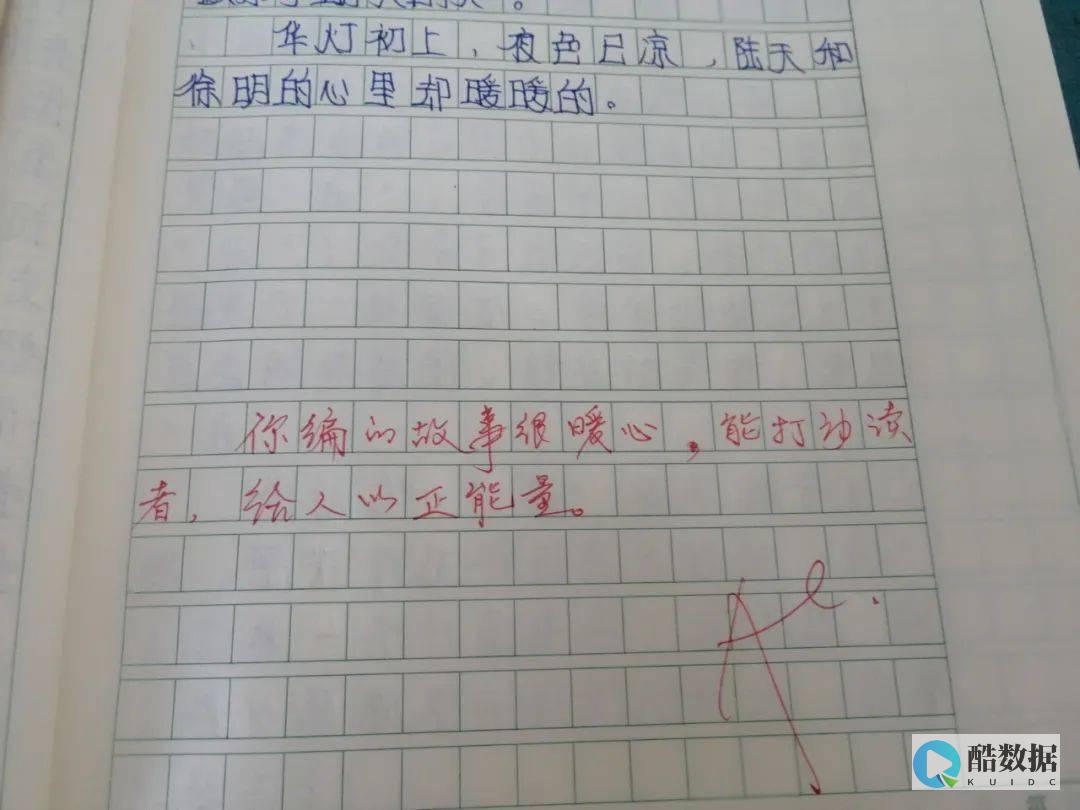 华灯初上，夜色已凉，陆天和
徐明的心里却暖暖的。
你编的故事很暖心，能打动读
者，给人以正能量。
A
酷数据
KUIDC